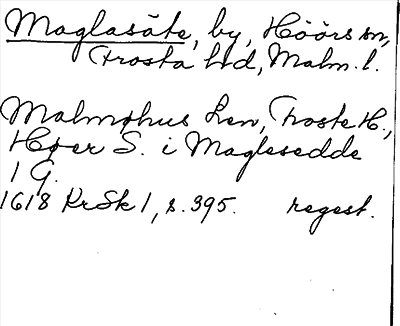 Maglasäte, by, Höörs sn,
Frosta hd, Malm. l.
Malmøhus Len, Froste H.,
Høer S. i Maglesedde
1 G.
1618 KrSk 1, s. 395. regest.